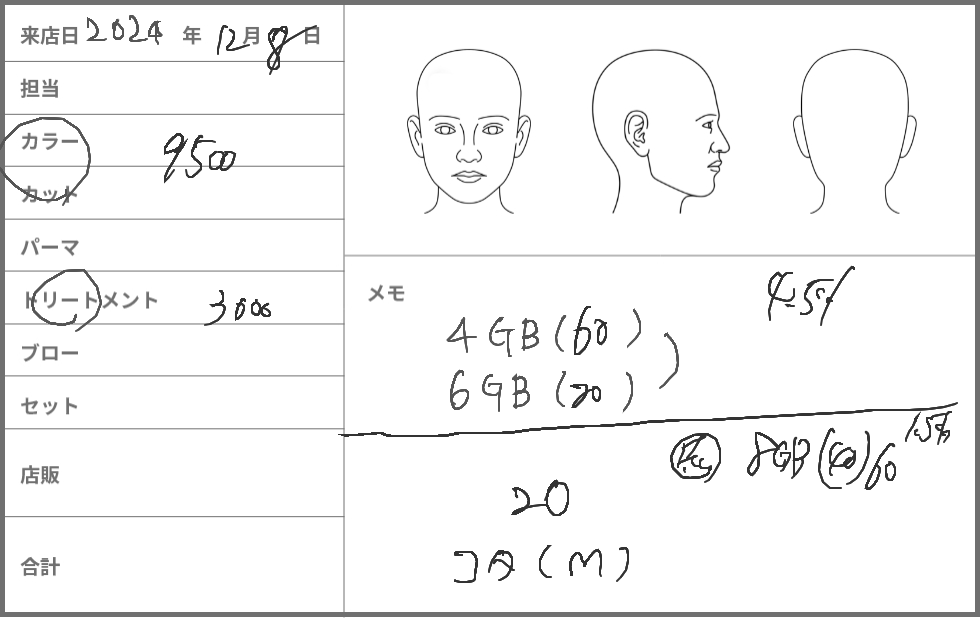 来店日 2024 年 12月8日
担当
カラー 9500
カット
パーマ
トリートメント 3000
ブロー
セット
店販
合計
メモ
4.5%
4GB(60)
6GB(20)
8GB(40)60 1.5%
20
コタ(M)